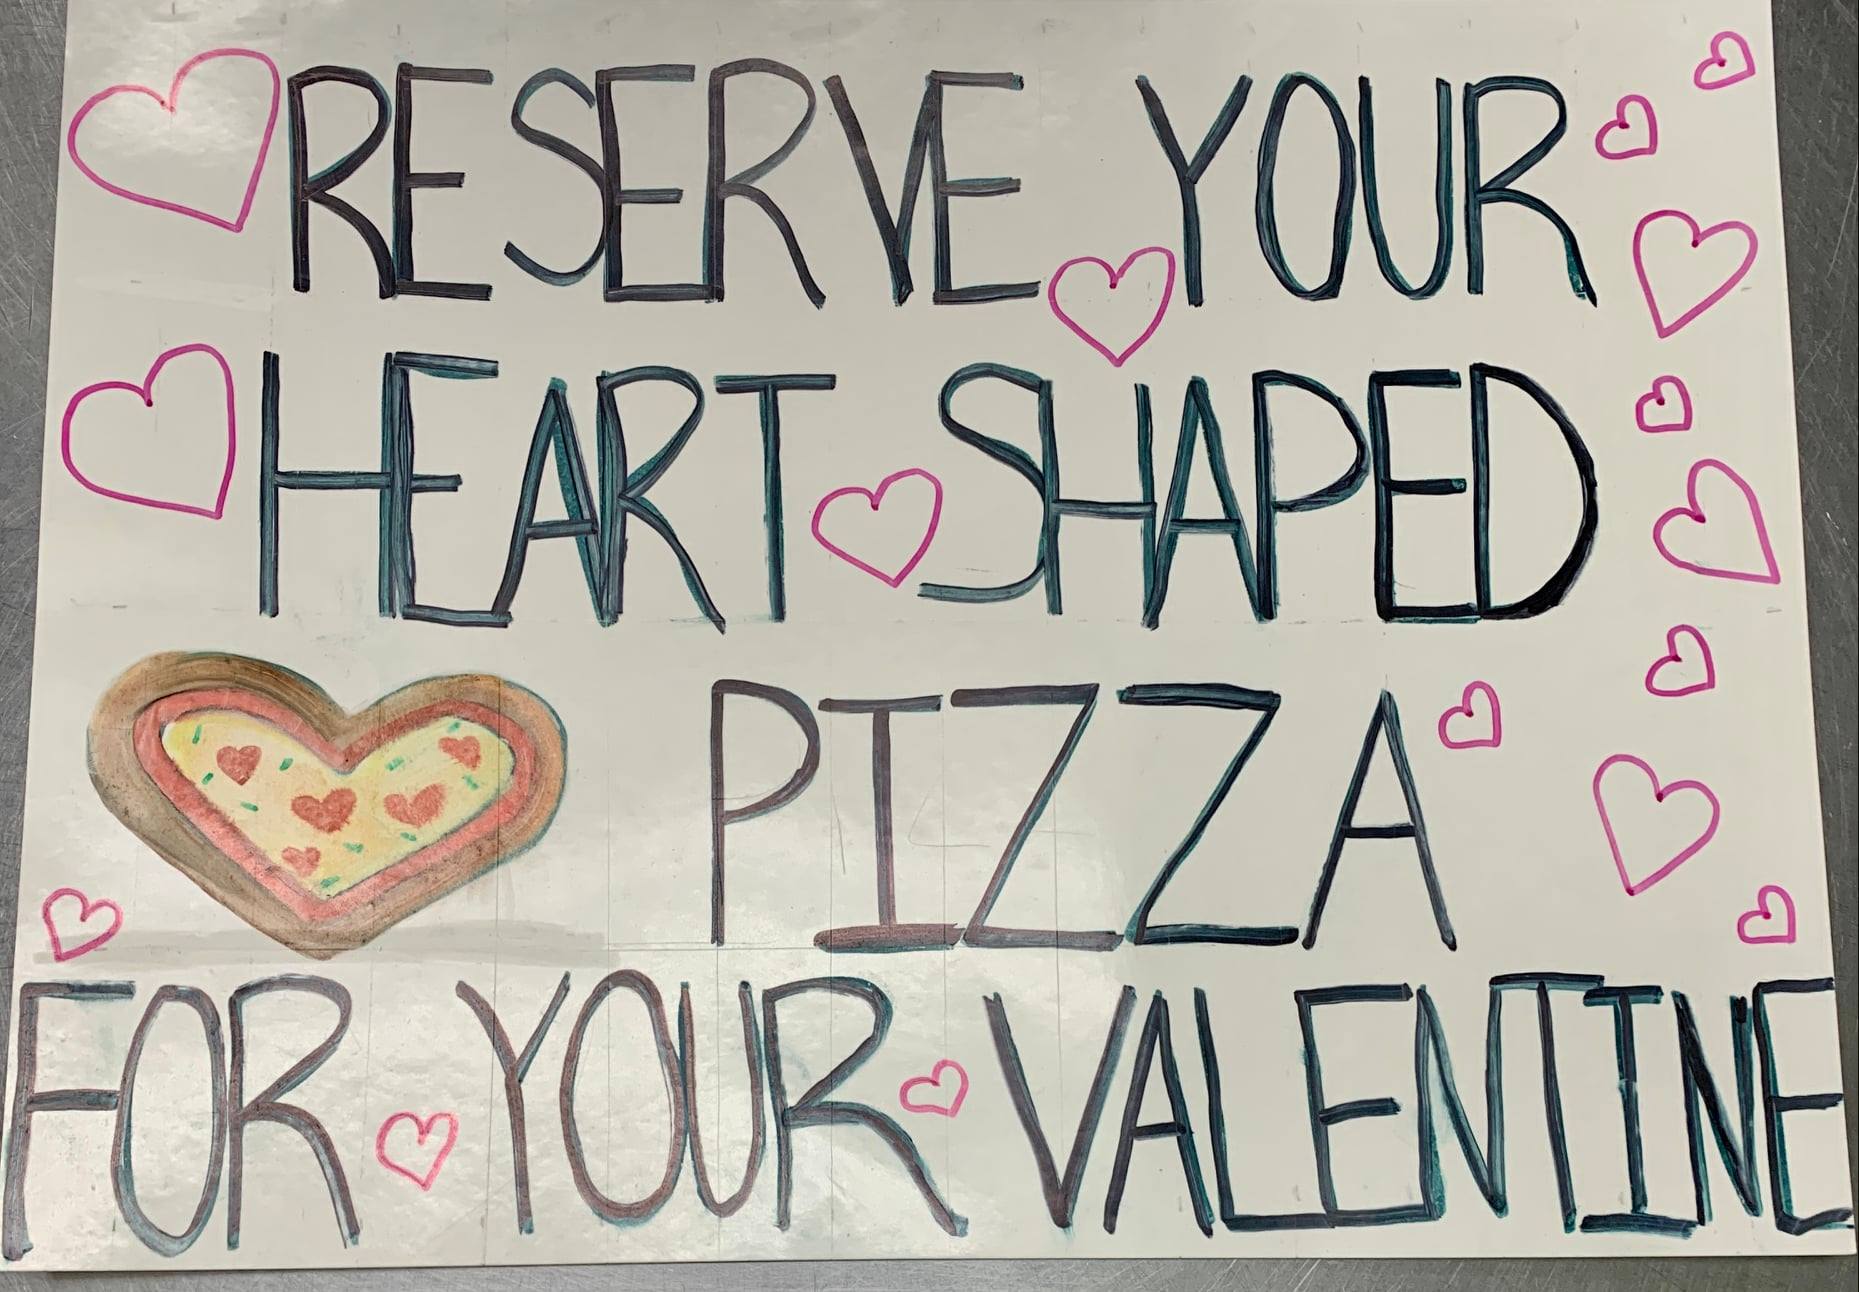 RESERVE YOUR
HEART SHAPED
PIZZA
FOR YOUR VALENTINE